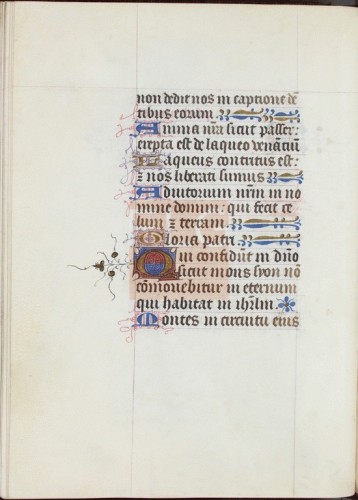 non dedit nos in captione dē
tibus eorum.
Anima nr̄a sicut passer:
erepta est de laqueo venātiū
Laqueus contritus est:
⁊ nos liberati sumus
Adiutorium nr̄m in no
mine domini: qui fecit ce
lum ⁊ terram.
Gloria patri.
Qui confidūt in dn̄o
sicut mons syon nō
cōmouebitur in eternum
qui habitat in ihr̄lm
Montes in circuitu eius